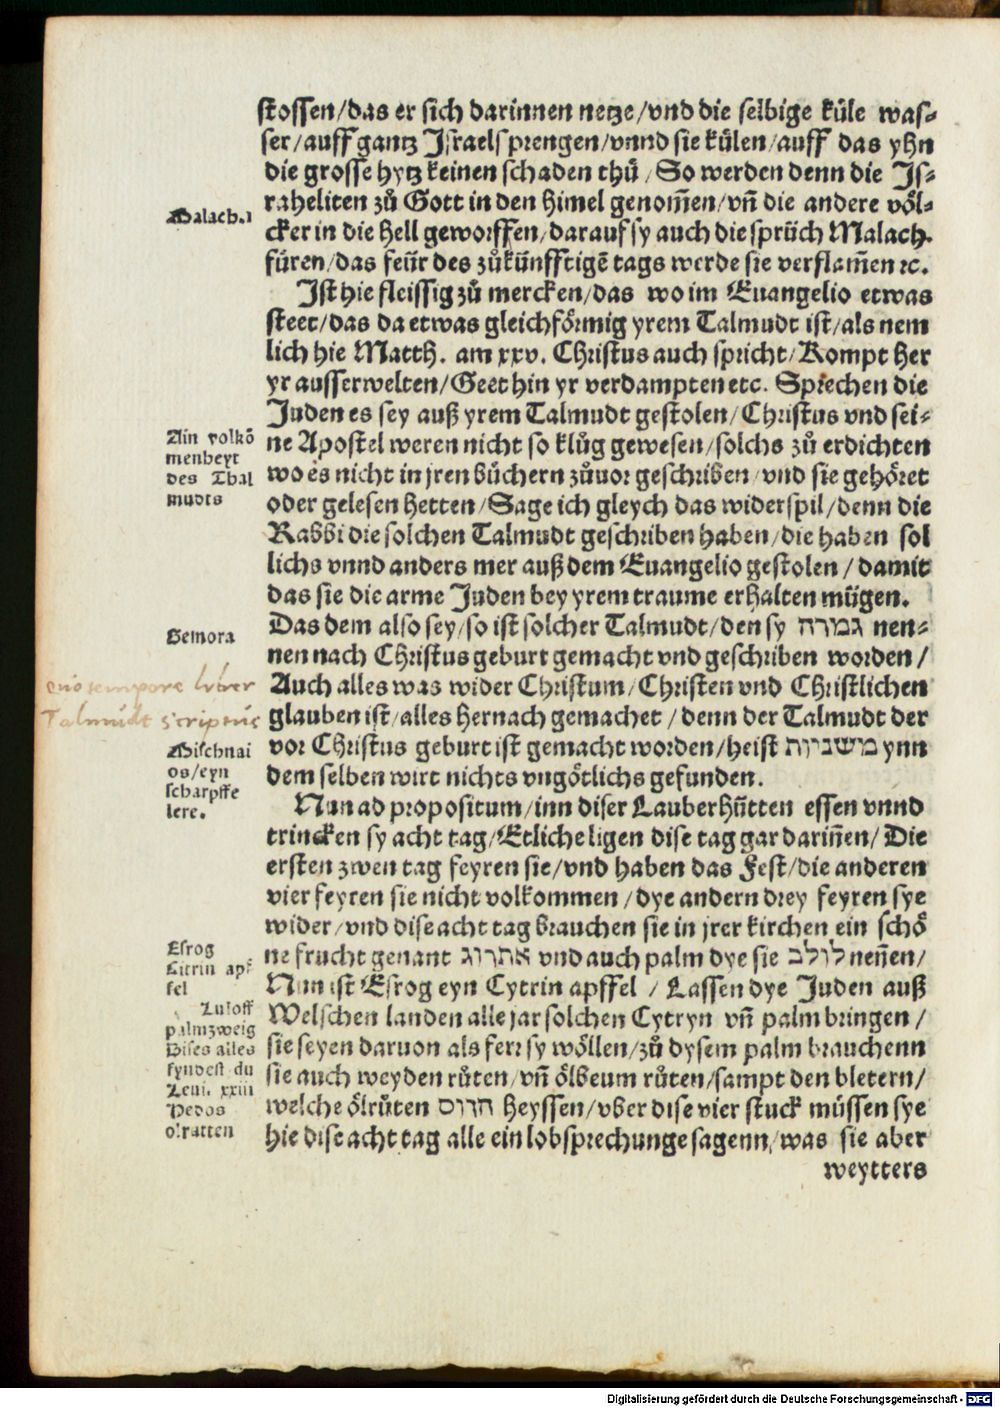 stossen/das er sich darinnen netze/vnd die selbige küle was⸗
ser/auff gantz Jsrael sprengen/vnnd sie külen/auff das yhn
die grosse hytz keinen schaden thů/So werden denn die Js⸗
raheliten zů Gott in den himel genom̃en/vñ die andere völ⸗
Malach.1
cker in die hell geworffen/darauf sy auch die sprüch Malach.
füren/das feür des zůkünfftigẽ tags werde sie verflam̃en ꝛc.
Jst hie fleissig zů mercken/das wo im Euangelio etwas
steet/das da etwas gleichförmig yrem Talmudt ist/als nem
lich hie Matth. am xxv. Christus auch spricht/Kompt her
yr ausserwelten/Geet hin yr verdampten etc. Sprechen die
Juden es sey auß yrem Talmudt gestolen/Christus vnd sei⸗
Ain volkõ
menheyt
des Thal
mudts
ne Apostel weren nicht so klůg gewesen/solchs zů erdichten
wo es nicht in jren bůchern zůuor geschriben/vnd sie gehöret
oder gelesen hetten/Sage ich gleych das widerspil/denn die
Rabbi die solchen Talmudt geschriben haben/die haben sol
lichs vnnd anders mer auß dem Euangelio gestolen/damit
das sie die arme Juden bey yrem traume erhalten mügen.
Gemora
Das dem also sey/so ist solcher Talmudt/den sy גמרה nen⸗
nen nach Christus geburt gemacht vnd geschriben worden/
quo tempore liber
Talmudt scriptus
Auch alles was wider Christum/Christen vnd Christlichen
glauben ist/alles hernach gemachet/denn der Talmudt der
Mischnai
os/eyn
scharpffe
lere.
vor Christus geburt ist gemacht worden/heist משניות ynn
dem selben wirt nichts vngötlichs gefunden.
Nun ad propositum/inn diser Lauberhütten essen vnnd
trincken sy acht tag/Etliche ligen dise tag gar darin̄en/Die
ersten zwen tag feyren sie/vnd haben das Fest/die anderen
vier feyren sie nicht volkommen/dye andern drey feyren sye
wider/vnd dise acht tag brauchen sie in jrer kirchen ein schö
Esrog
Citrin apf
fel
ne frucht genant אתרוג vnd auch palm dye sie לולב nen̄en/
Nun ist Esrog eyn Cytrin apffel/Lassen dye Juden auß
Luloff
palmzweig
Dises alles
fyndest du
Leui. xxiii
Hedos
ölratten
Welschen landen alle jar solchen Cytryn vñ palm bringen/
sie seyen daruon als ferr sy wöllen/zů dysem palm brauchenn
sie auch weyden růten/vñ ölbeum růten/sampt den bletern/
welche ölrůten הדוס heyssen/vber dise vier stuck müssen sye
hie dise acht tag alle ein lobsprechunge sagenn/was sie aber
weytters
Digitalisierung gefördert durch die Deutsche Forschungsgemeinschaft - DFG